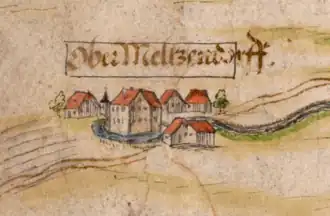 Ober Meltzendorff